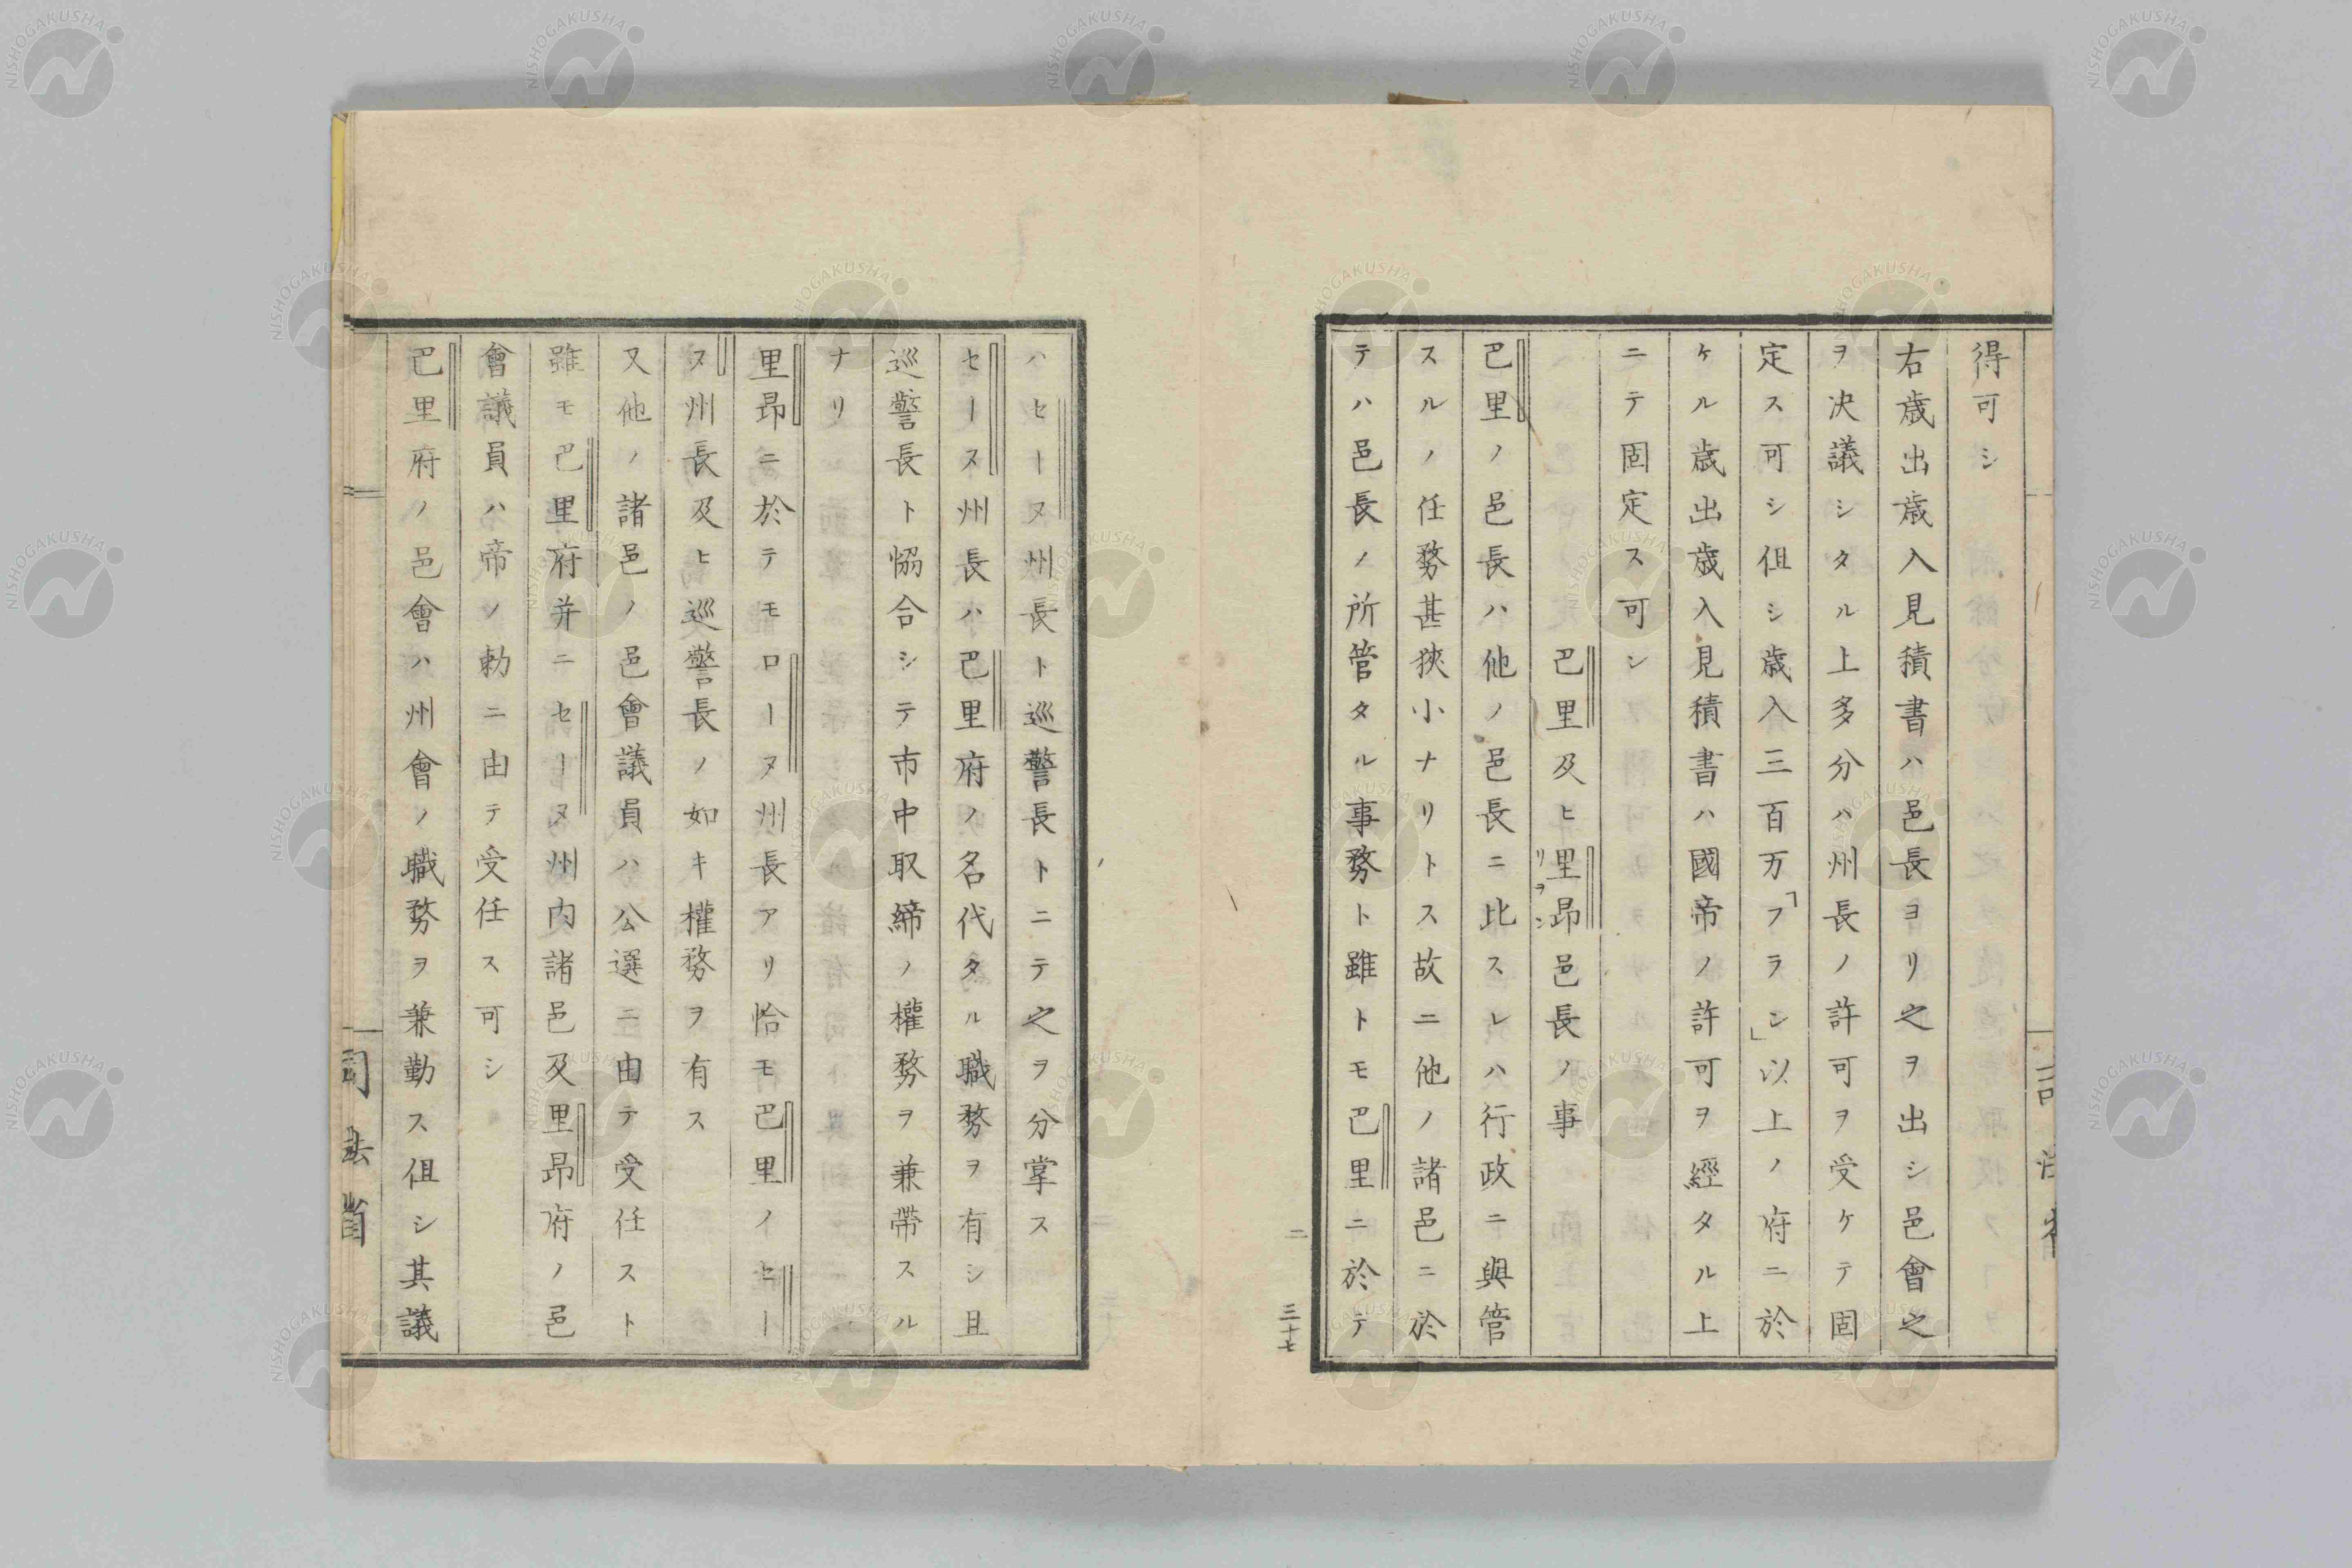 得可シ
右歳出歳入見積書ハ邑長ヨリ之ヲ出シ邑會之
ヲ决議シタル上多分ハ州長ノ許可ヲ受ケテ固
定ス可シ但シ歳入三百万「フラン」以上ノ府ニ於
ケル歳出歳入見積書ハ國帝ノ許可ヲ經タル上
ニテ固定ス可シ
巴里及ヒ里昂邑長ノ事
リヲン
巴里ノ邑長ハ他ノ邑長ニ比スレハ行政ニ與管
スルノ任務甚狹小ナリトス故ニ他ノ諸邑ニ於
テハ邑長ノ所管タル事務ト雖トモ巴里ニ於テ
三十七
ハセーヌ州長ト巡警長トニテ之ヲ分掌ス
セーヌ州長ハ巴里府ノ名代タル職務ヲ有シ且
巡警長ト恊合シテ市中取締ノ權務ヲ兼帶スル
ナリ
里昂ニ於テモローヌ州長アリ恰モ巴里ノセー
ヌ州長及ヒ巡警長ノ如キ權務ヲ有ス
又他ノ諸邑ノ邑會議員ハ公選ニ由テ受任スト
雖モ巴里府并ニセーヌ州内諸邑及里昂府ノ邑
會議員ハ帝ノ勅ニ由テ受任ス可シ
巴里府ノ邑會ハ州會ノ職務ヲ兼勤ス但シ其議
司法省
NISHOGAKUSHA